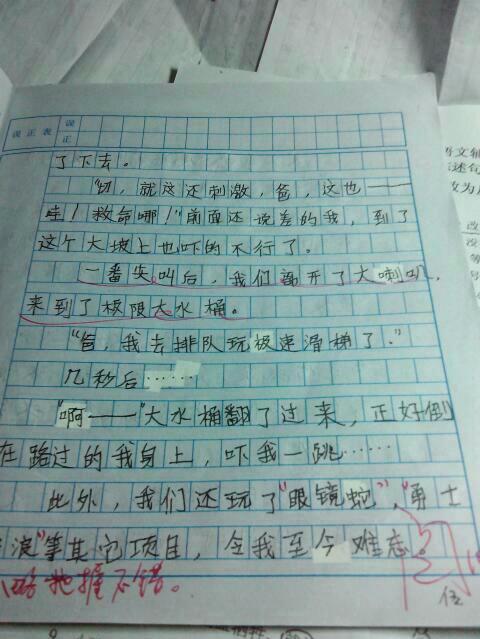 误正表 误
正
了下去。
"切，就这还刺激，爸，这也——
哇！救命哪！"前面还说差的我，到了
这个大坡上也吓的不行了。
一番尖叫后，我们离开了大喇叭，
来到了极限大水桶。
"爸，我去排队玩极速滑梯了."
几秒后……
"啊——"大水桶翻了过来，正好倒
在路过的我身上，吓我一跳……
此外，我们还玩了"眼镜蛇"，"勇士
浪"等其它项目，令我至今难忘。
略把握不错。
位